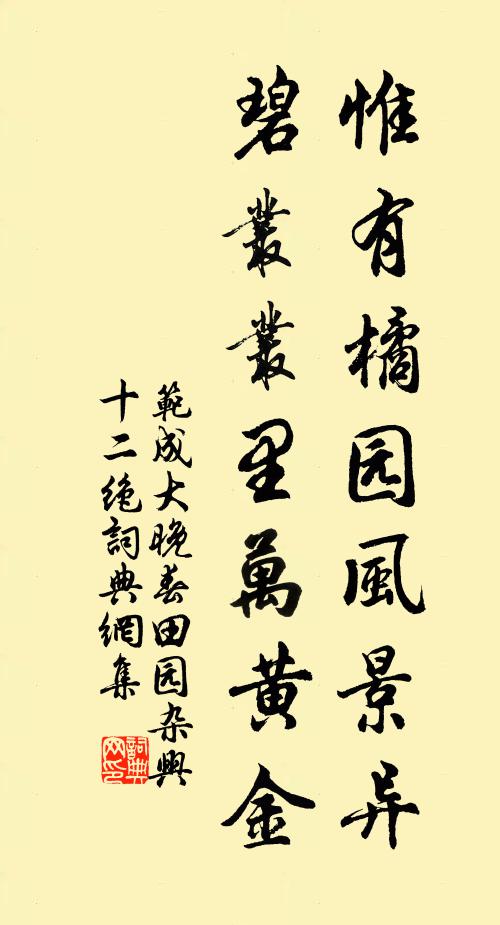 惟有橘园風景异
碧叢叢里萬黄金
範成大晚春田园杂興
十二绝詞典網集
詞典网印